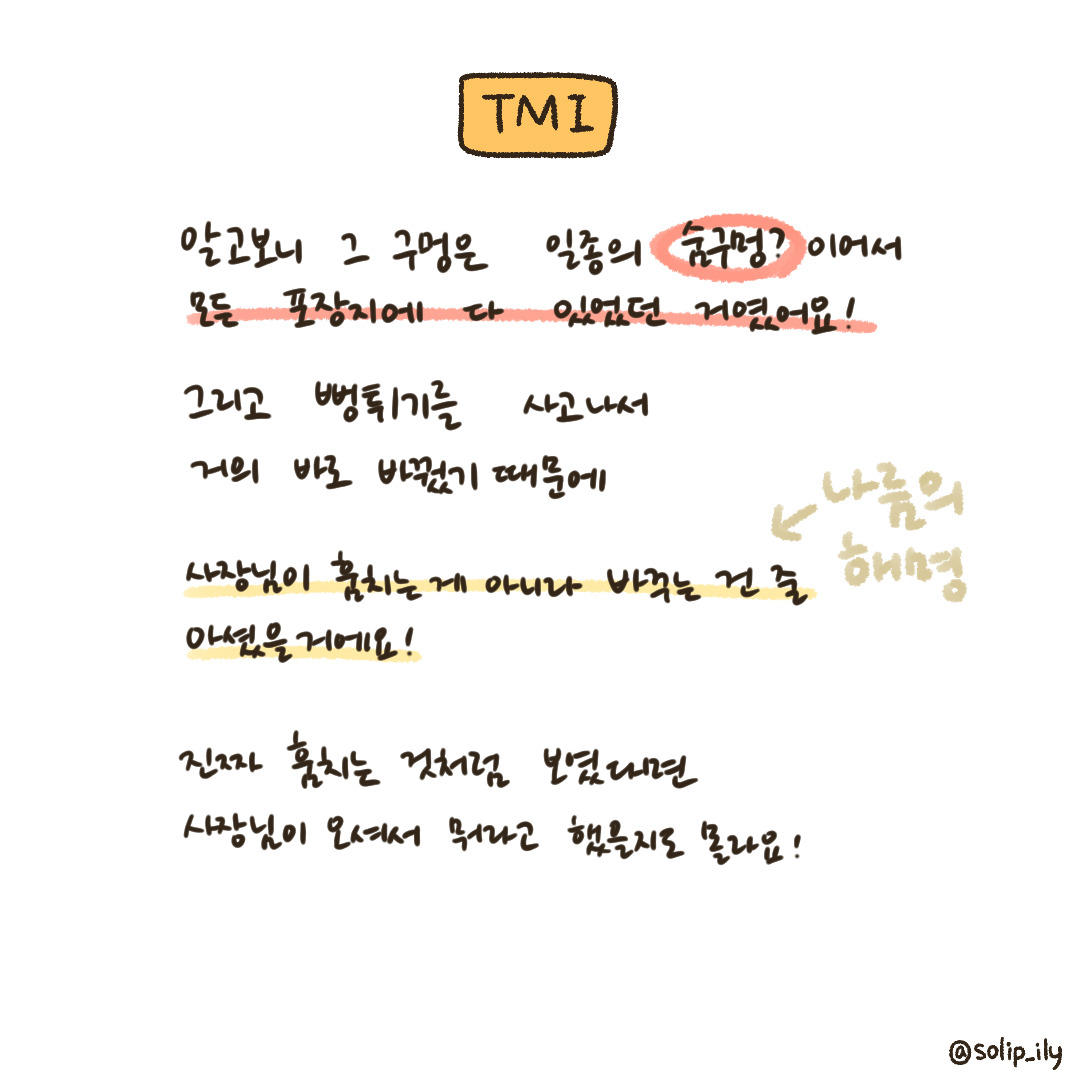 TMI
알고보니 그 구멍은 일종의 숨구멍? 이어서
모든 포장지에 다 있었던 거였어요!
그리고 뻥튀기를 사고나서
거의 바로 바꿨기 때문에
사장님이 훔치는게 아니라 바꾸는 건 줄
아셨을거에요!
나름의
해명
진짜 훔치는 것처럼 보였다면
사장님이 오셔서 뭐라고 했을지도 몰라요!
@solip_ily